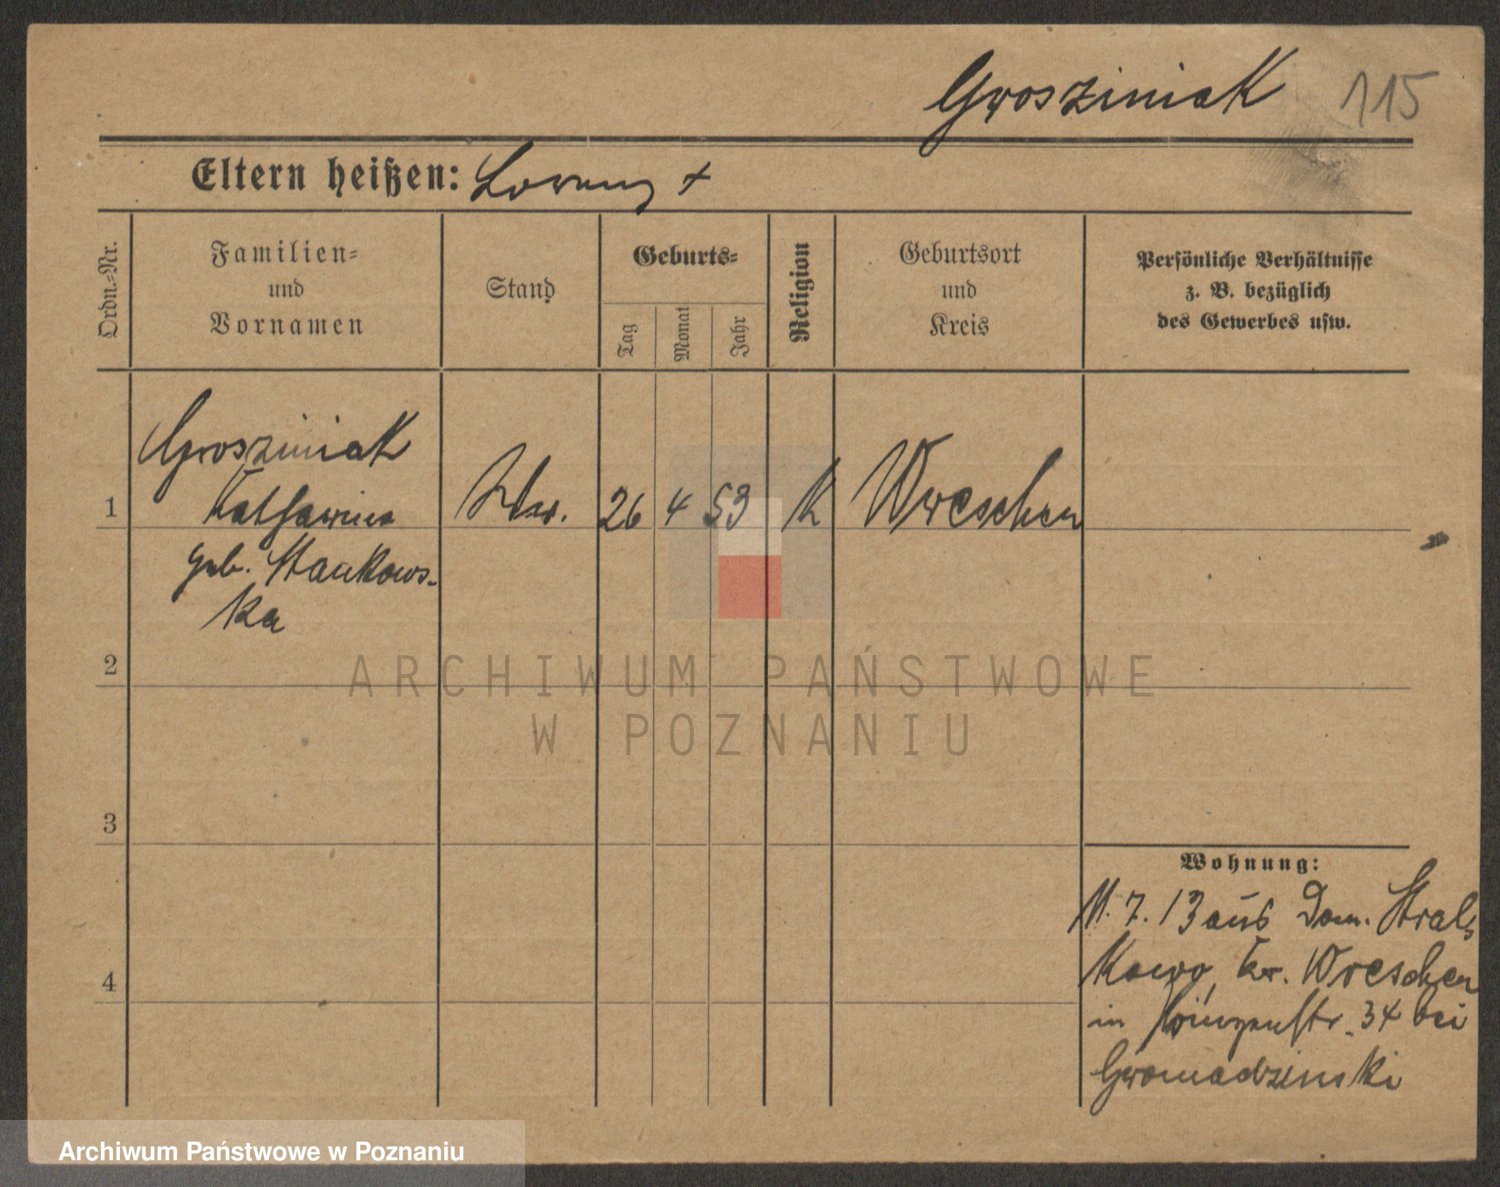 Grosziniak 115
Eltern heißen: Lorenz +
Ordn.-Nr.
Familien-
und
Vornamen
Stand
Geburts-
Tag
Monat
Jahr
Religion
Geburtsort
und
Kreis
Persönliche Verhältnisse
z. B. bezüglich
des Gewerbes usw.
Grosziniak
1 Katharina Ww. 26 4 53 K Wreschen
geb. Stankows-
ka
2
3
4
Wohnung:
11. 7. 13 aus Dom. Stral-
kowo, Kr. Wreschen
in 34 bei
Gromadzinski
ARCHIWUM PAŃSTWOWE
W POZNANIU
Archiwum Państwowe w Poznaniu